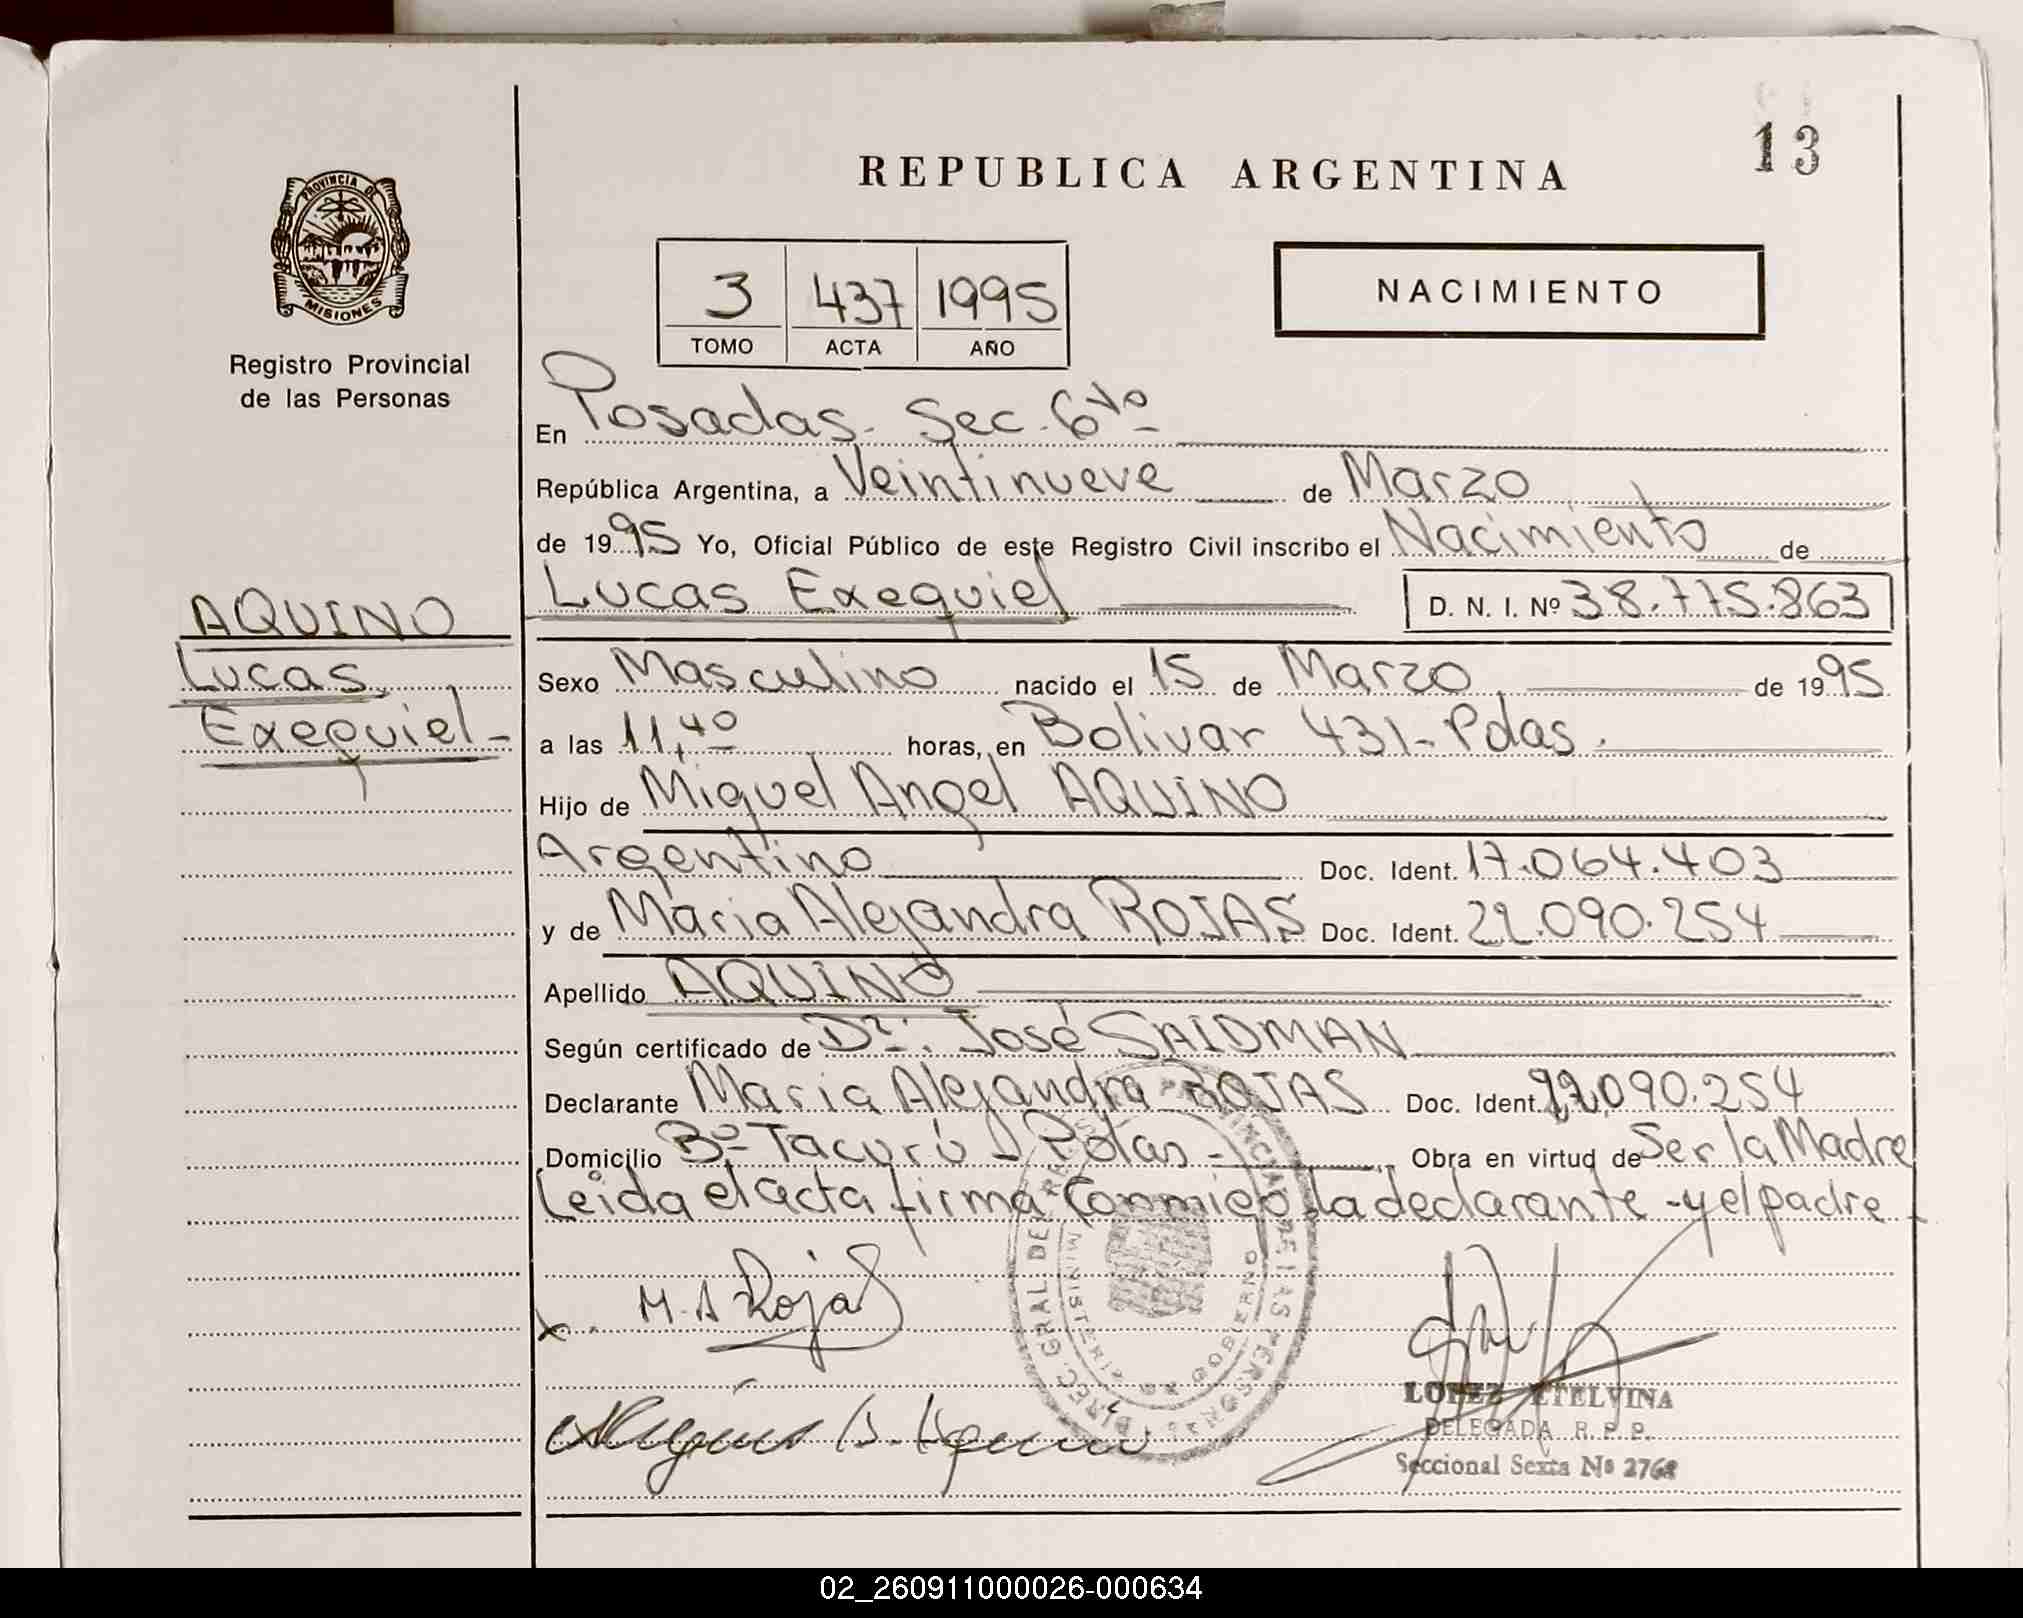 13
REPUBLICA ARGENTINA
PROVINCIA DE MISIONES
Registro Provincial
de las Personas
3 437 1995
TOMO ACTA AÑO
NACIMIENTO
En Posadas. Sec. 6ta
República Argentina, a Veintinueve de Marzo
de 1995 Yo, Oficial Público de este Registro Civil inscribo el Nacimiento de
Lucas Exequiel D. N. I. Nº 38.775.863
AQUINO
Lucas
Exequiel-
Sexo Masculino nacido el 15 de Marzo de 1995
a las 11,40 horas, en Bolivar 431- Pdas.
Hijo de Miguel Angel AQUINO
Argentino Doc. Ident. 17.064.403
y de Maria Alejandra ROJAS Doc. Ident. 22.090.254
Apellido AQUINO
Según certificado de Dr. José SAIDMAN
Declarante Maria Alejandra ROJAS Doc. Ident. 22.090.254
Domicilio Bº Tacurú - Pdas - Obra en virtud de Ser la Madre
Leida el acta firma conmigo la declarante - y el padre
x. M. A Rojas
LOPEZ ETELVINA
DELEGADA R. P. P.
Seccional Sexta Nº 2768
DIREC. GRAL DEL REG. PROVINCIAL DE LAS PERSONAS
MINISTERIO DE GOBIERNO
02_260911000026-000634